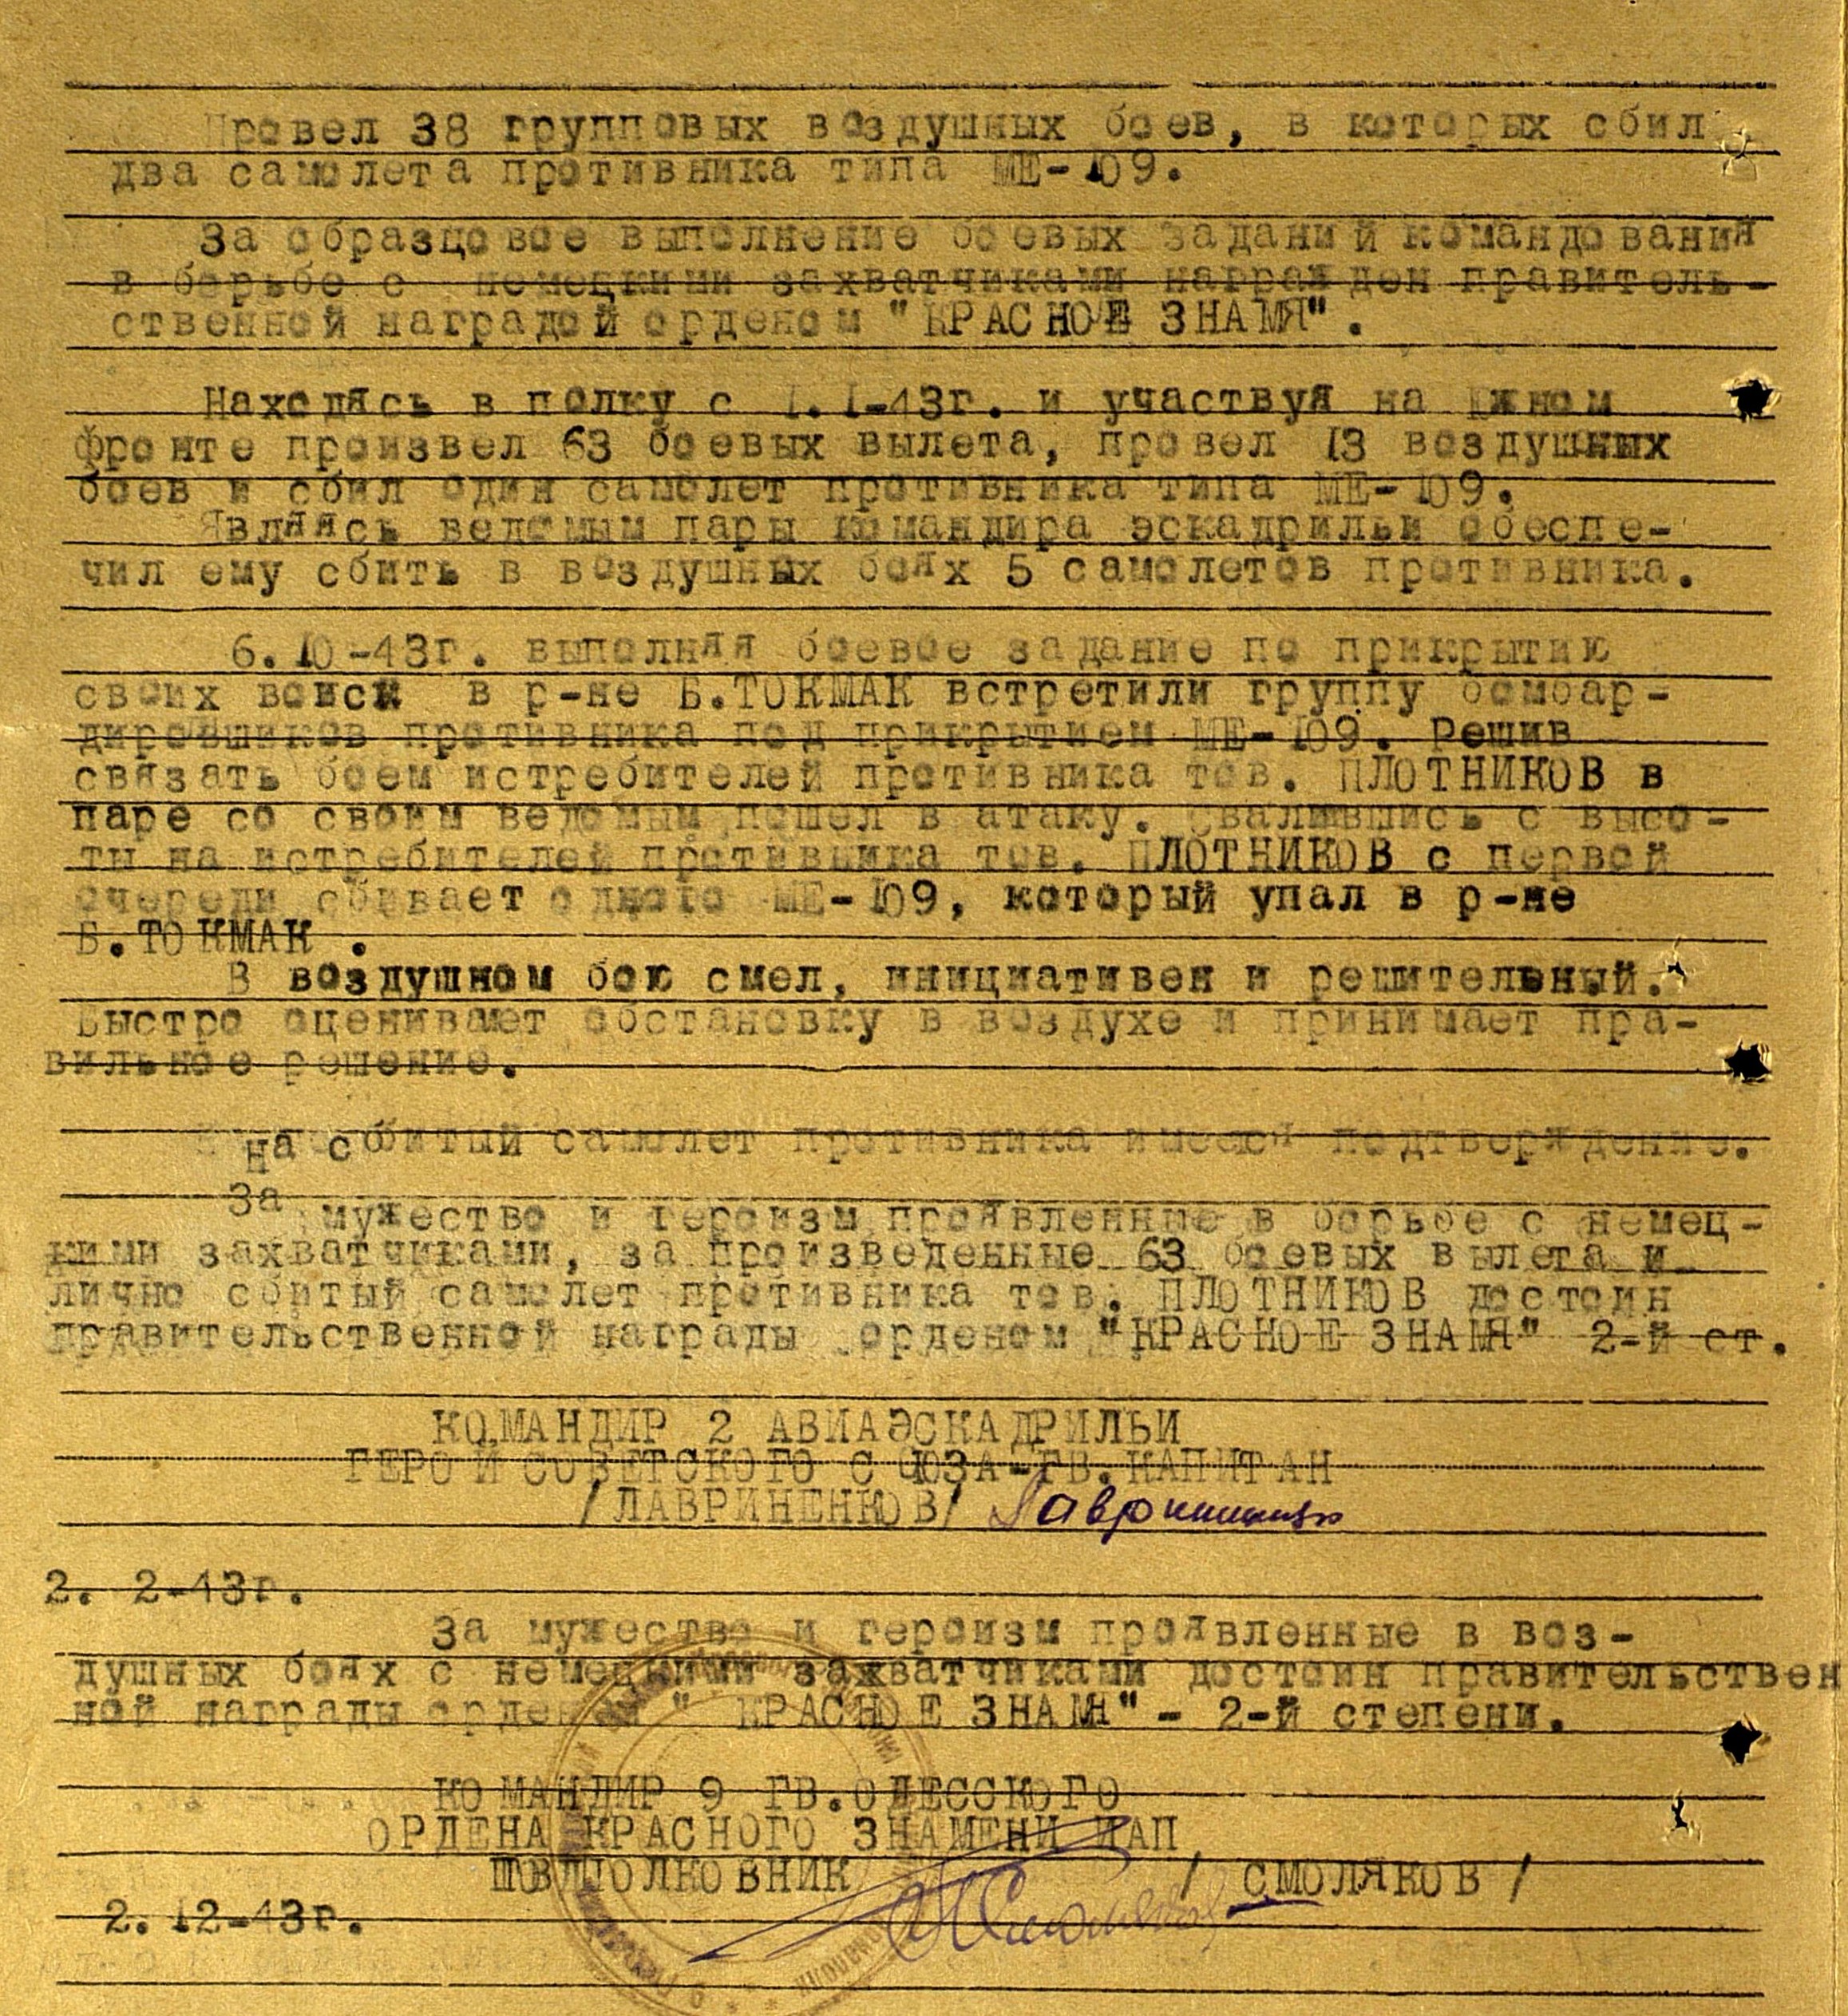 Провел 38 групповых воздушных боев, в которых сбил
два самолета противника типа МЕ-109.
За образцовое выполнение боевых заданий командования
в борьбе с немецкими захватчиками награжден правитель-
ственной наградой орденом "КРАСНОЕ ЗНАМЯ".
Находясь в полку с 1.1-43г. и участвуя на Южном
фронте произвел 63 боевых вылета, провел 13 воздушных
боев и сбил один самолет противника типа МЕ-109.
Являясь ведомым пары командира эскадрильи обеспе-
чил ему сбить в воздушных боях 5 самолетов противника.
6.10-43г. выполняя боевое задание по прикрытию
своих войск в р-не Б.ТОКМАК встретили группу бомбар-
дировшиков противника под прикрытием МЕ-109. Решив
связать боем истребителей противника тов. ПЛОТНИКОВ в
паре со своим ведомым пошел в атаку. Свалившись с высо-
ты на истребителей противника тов. ПЛОТНИКОВ с первой
очереди сбивает одного МЕ-109, который упал в р-не
Б.ТОКМАК .
В воздушном бою смел, инициативен и решительный.
Быстро оценивает обстановку в воздухе и принимает пра-
вильное решение.
на сбитый самолет противника имеется подтверждение.
За мужество и героизм проявленные в борьбе с немец-
кими захватчиками, за произведенные 63 боевых вылета и
лично сбитый самолет противника тов. ПЛОТНИКОВ достоин
правительственной награды орденом "КРАСНОЕ ЗНАМЯ" 2-й ст.
КОМАНДИР 2 АВИАЭСКАДРИЛЬИ
ГЕРОЙ СОВЕТСКОГО СОЮЗА-ГВ.КАПИТАН
/ЛАВРИНЕНКОВ/ Лавриненков
2. 2-43г.
За мужество и героизм проявленные в воз-
душных боях с немецкими захватчиками достоин правительствен
ной награды орденом " КРАСНОЕ ЗНАМЯ" - 2-й степени.
КОМАНДИР 9 ГВ.ОДЕССКОГО
ОРДЕНА КРАСНОГО ЗНАМЕНИ ИАП
ПОДПОЛКОВНИК / СМОЛЯКОВ /
2.12-43г.